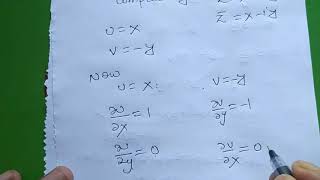 z̄ = x-iy
u = x
v = -y
Now
u = x v = -y
∂u/∂x = 1 ∂v/∂y = -1
∂u/∂y = 0 ∂v/∂x = 0